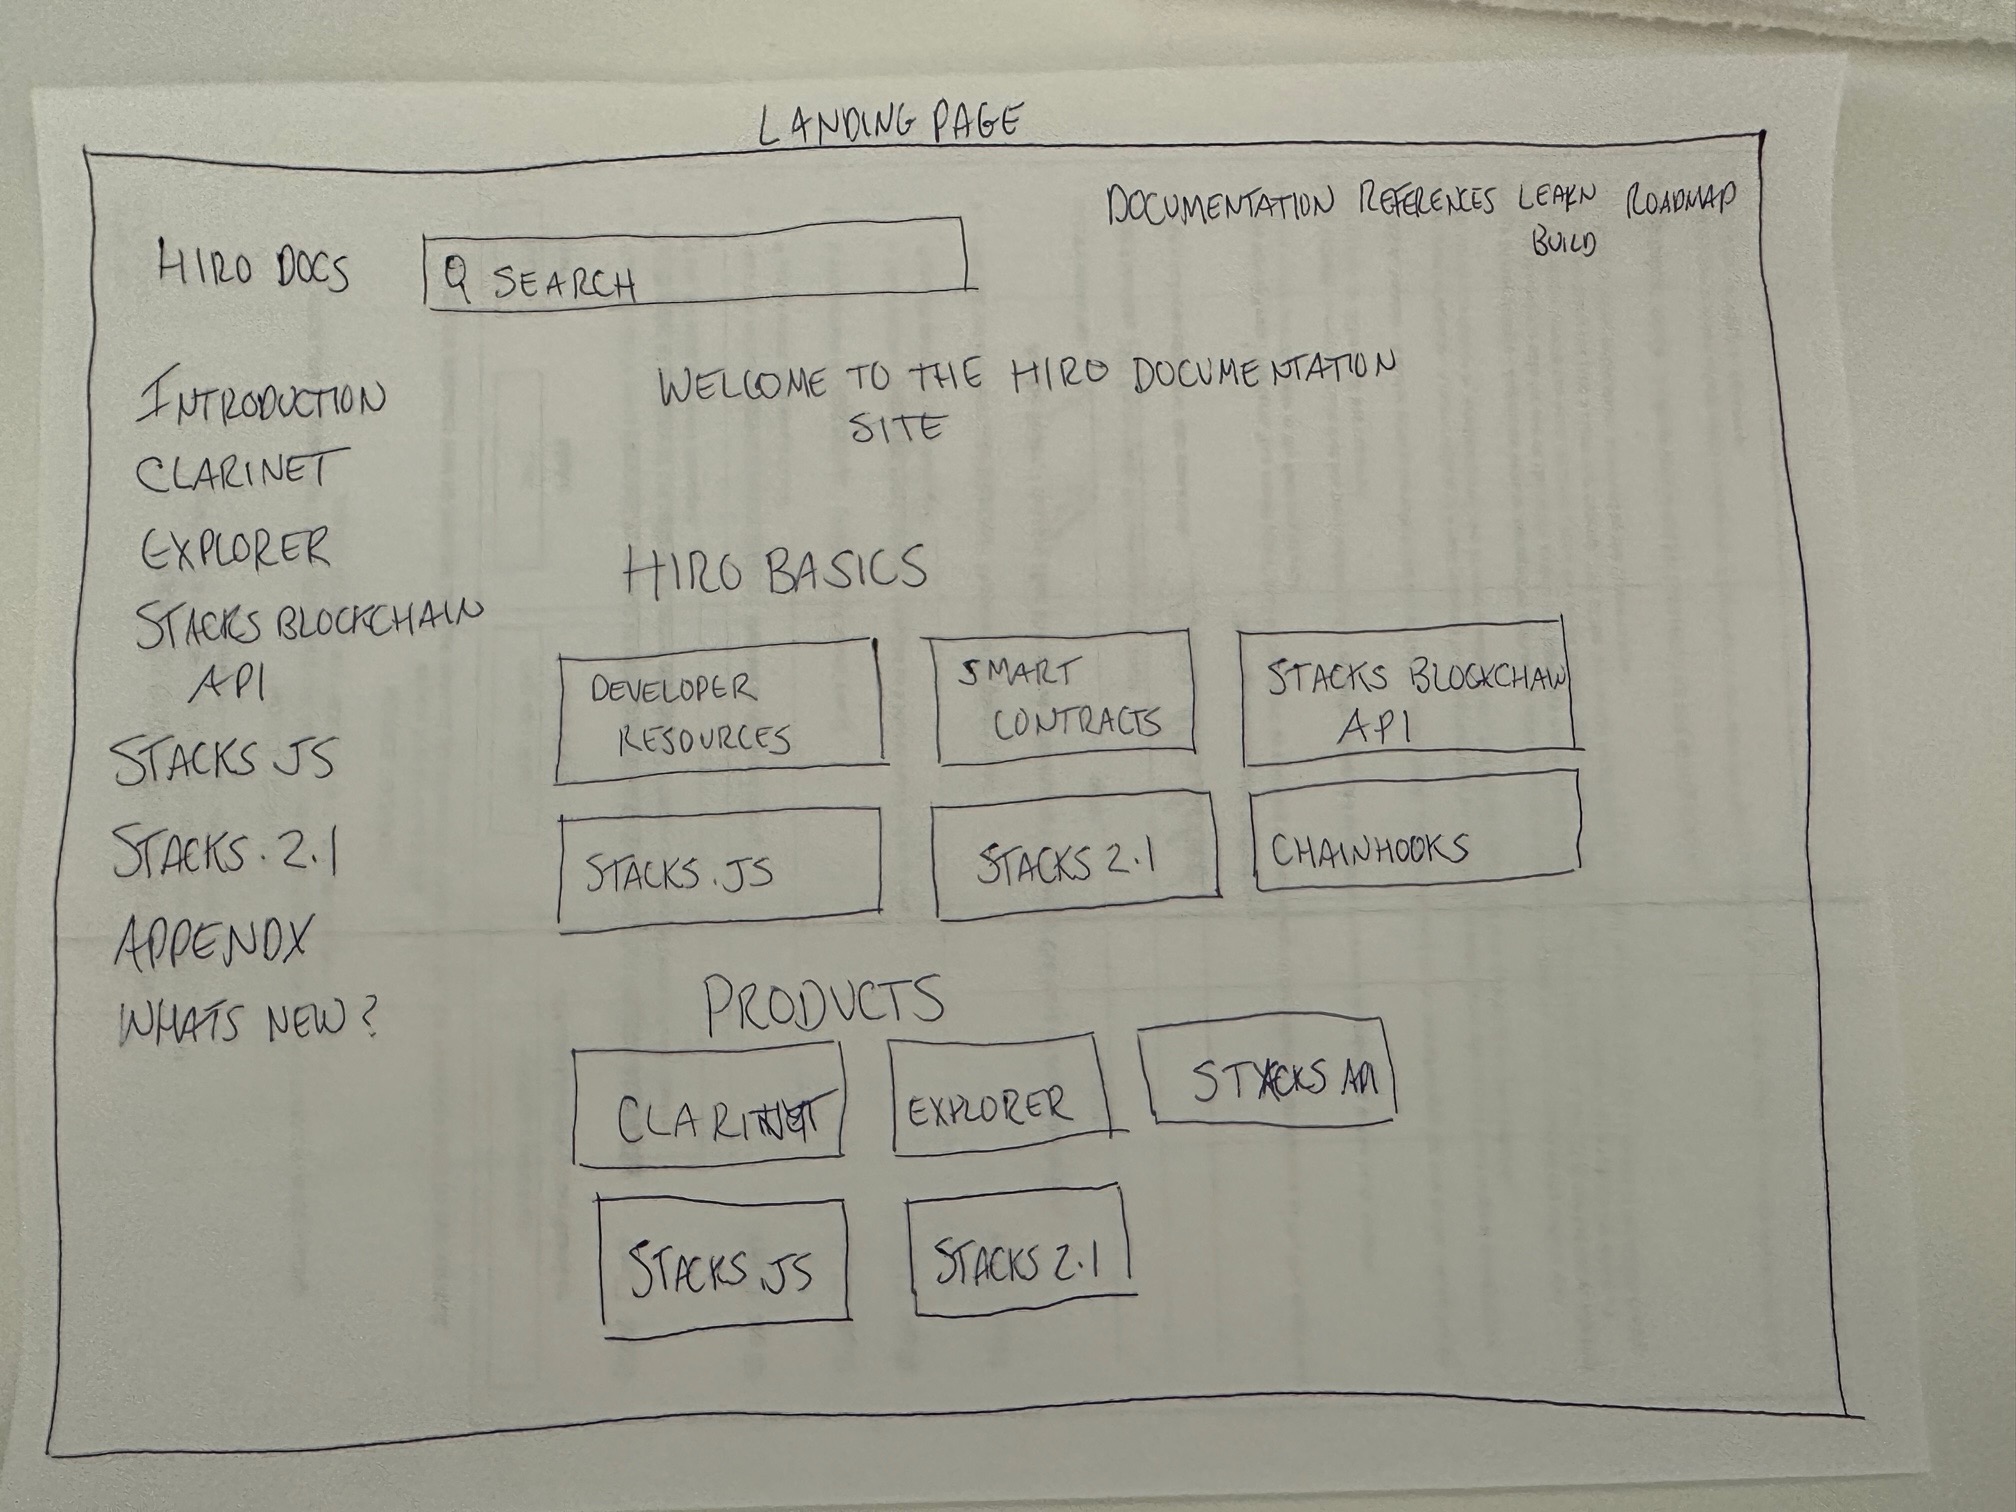 LANDING PAGE
DOCUMENTATION REFERENCES LEARN ROADMAP
BUILD
HIRO DOCS
SEARCH
INTRODUCTION
CLARINET
EXPLORER
STACKS BLOCKCHAIN
API
STACKS JS
STACKS.2.1
APPENDX
WHATS NEW?
WELCOME TO THE HIRO DOCUMENTATION
SITE
HIRO BASICS
DEVELOPER
RESOURCES
SMART
CONTRACTS
STACKS BLOCKCHAIN
API
STACKS.JS
STACKS 2.1
CHAINHOOKS
PRODUCTS
CLARINET
EXPLORER
STACKS API
STACKS.JS
STACKS 2.1